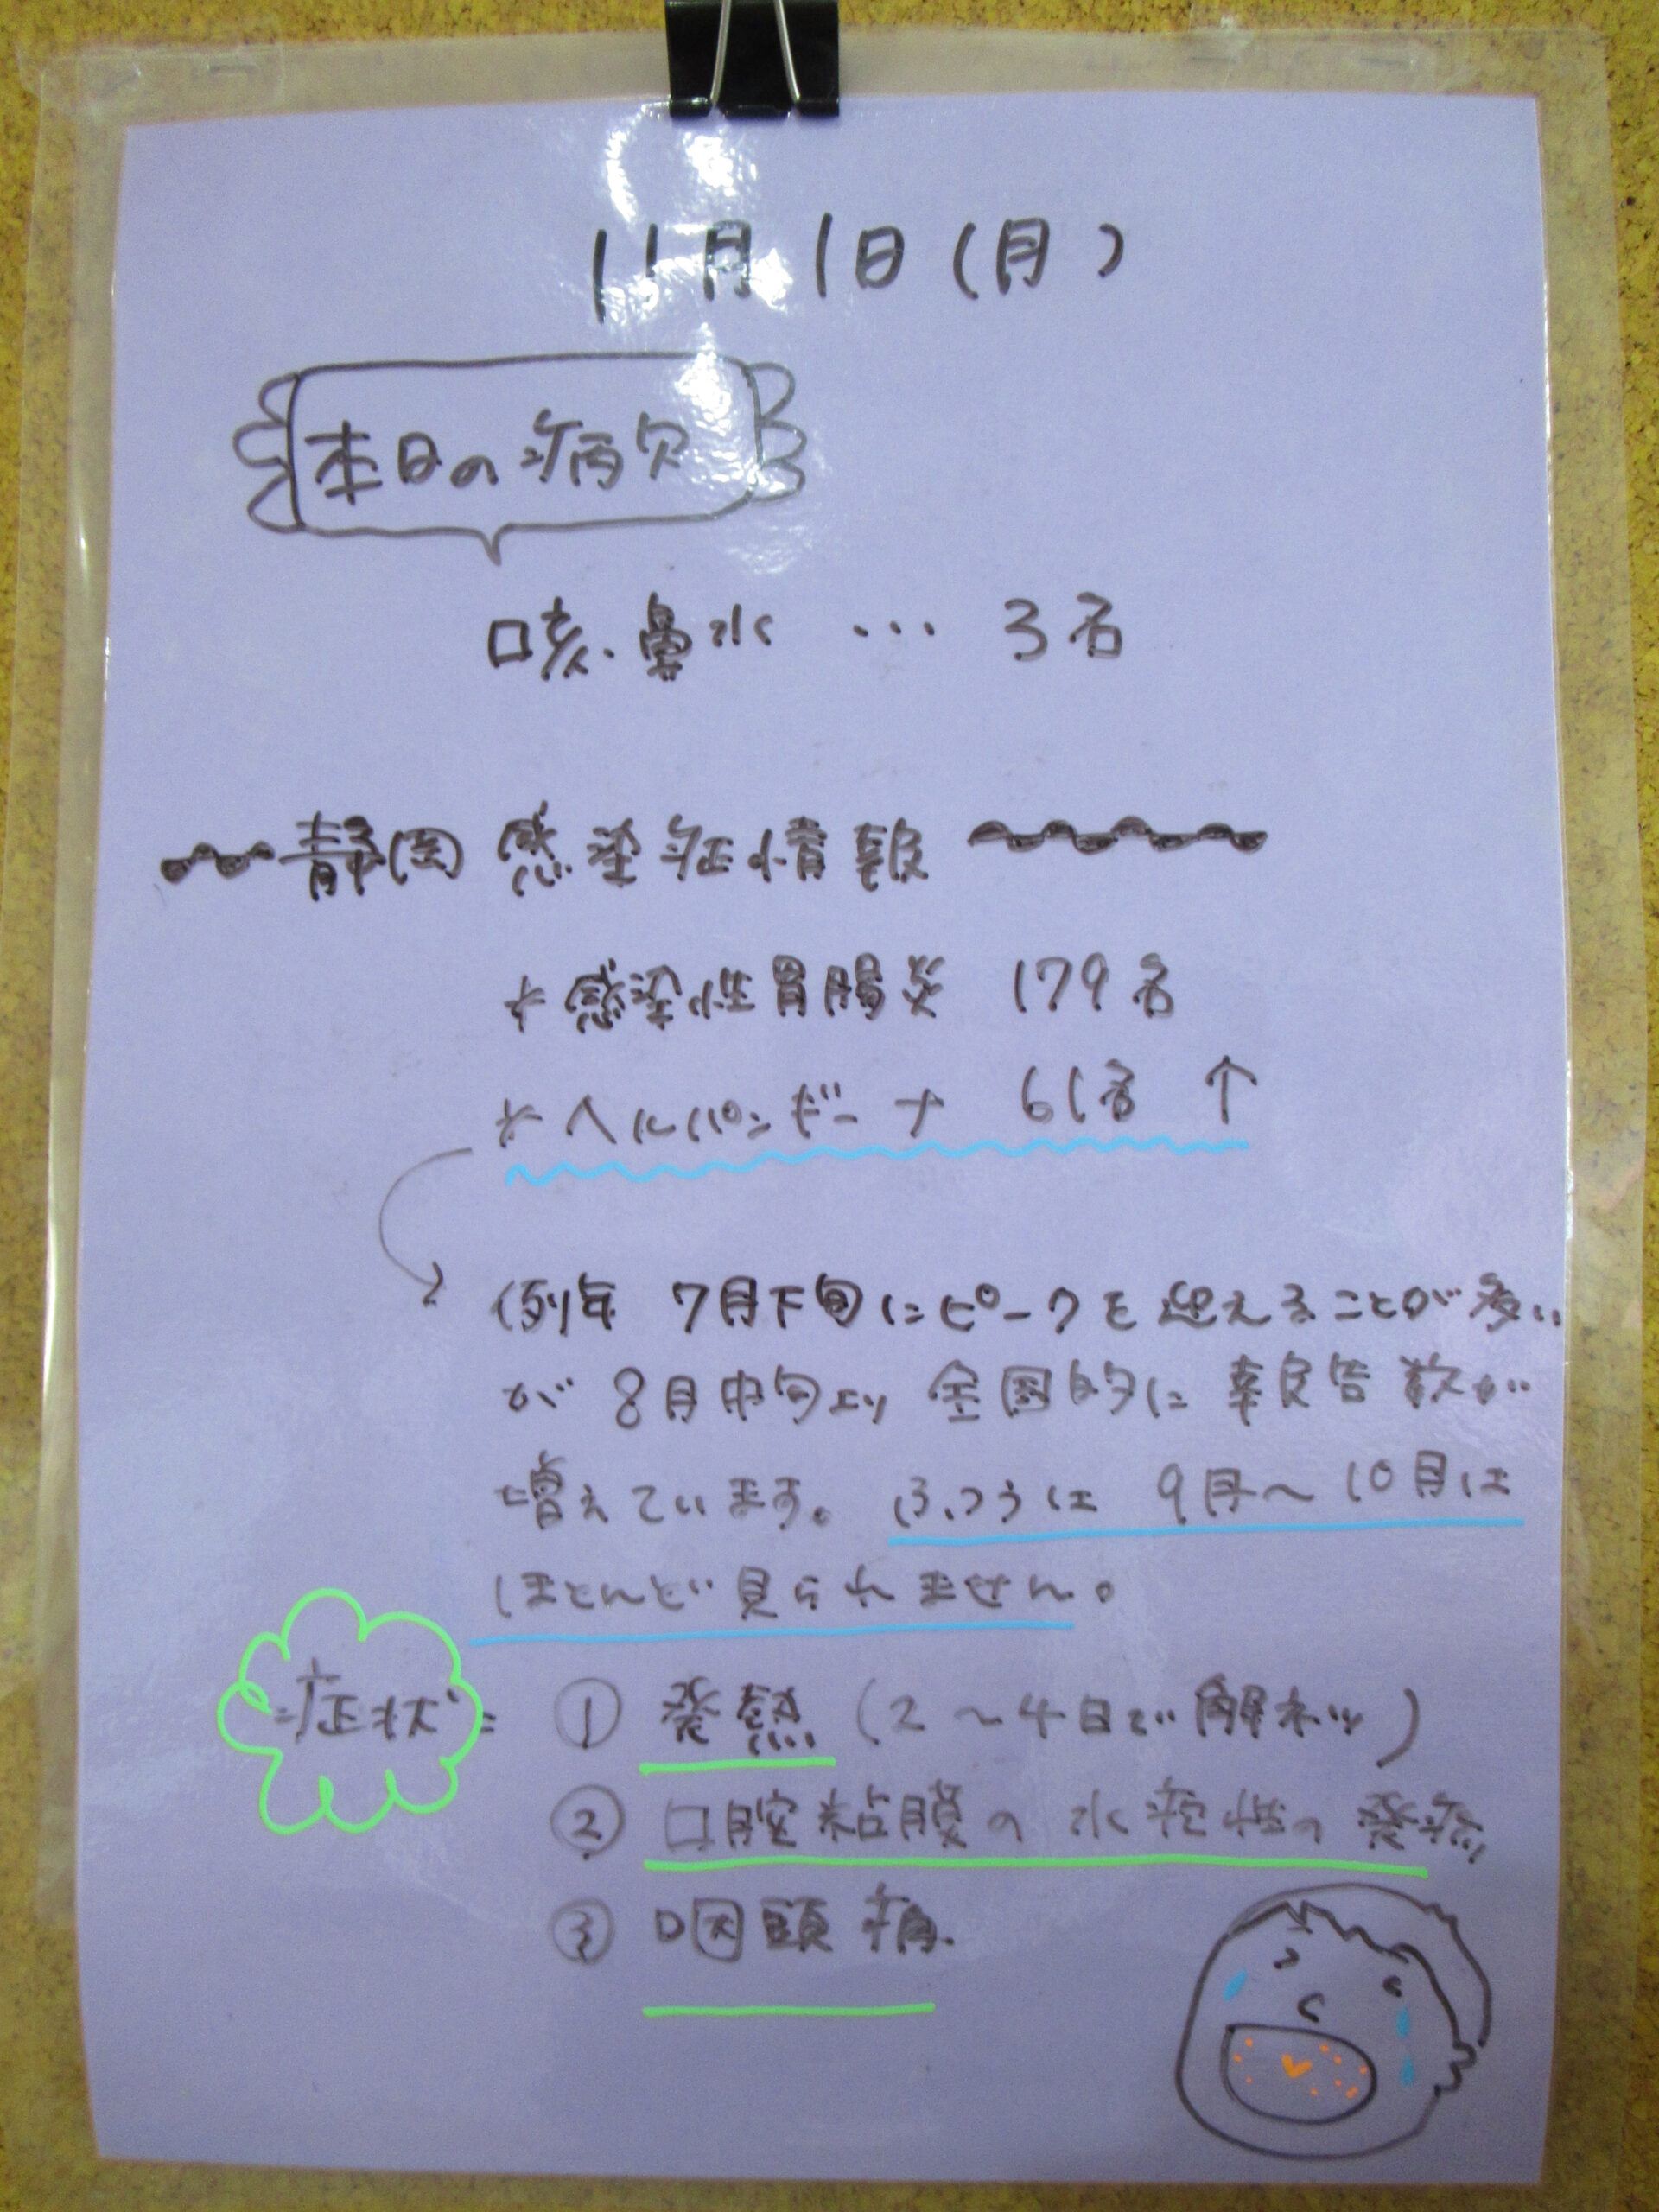 11月1日(月)
本日の病欠
咳・鼻水 … 3名
静岡 感染症情報
* 感染性胃腸炎 179名
* ヘルパンギーナ 61名 ↑
例年 7月下旬にピークを迎えることが多い
が 8月中旬より 全国的に 報告数が
増えています。ふつうは 9月〜10月は
ほとんど見られません。
症状 = ① 発熱 (2〜4日で解ネツ)
② 口腔粘膜の 水疱性の 発疹
③ 咽頭痛